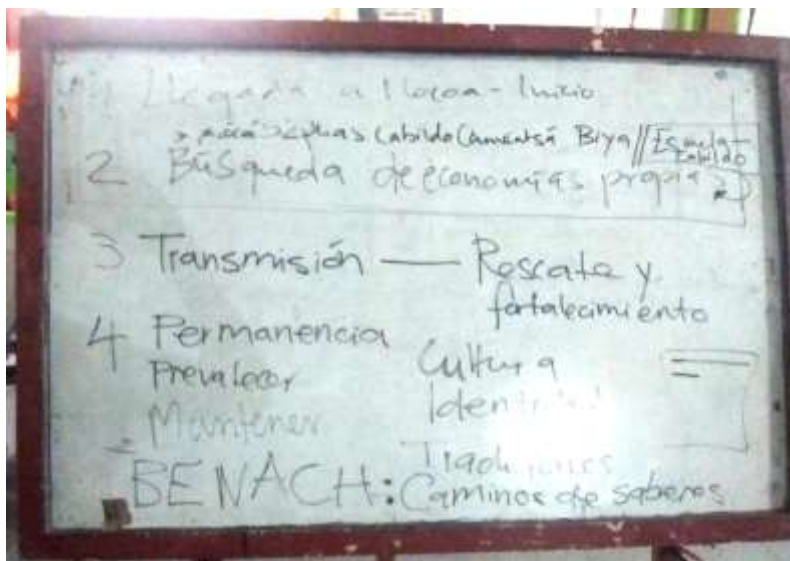 1 Llegada a Mocoa - Inicio
Cabildo Camentsá Biya // Escuela
Cabildo
2 Búsqueda de economías propias
3 Transmisión — Rescate y
fortalecimiento
4 Permanencia
Prevalecer
Mantener
Cultura
Identidad
Tradiciones
BENACH: Caminos de saberes